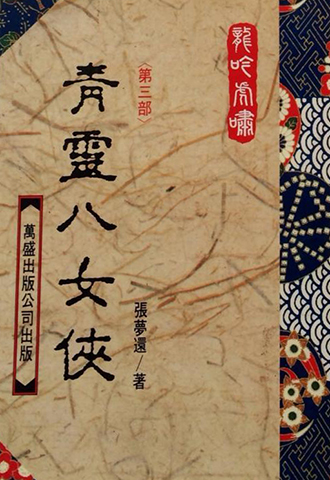 龍吟虎嘯
〈第三部〉
青靈八女俠
張夢還／著
萬盛出版公司出版